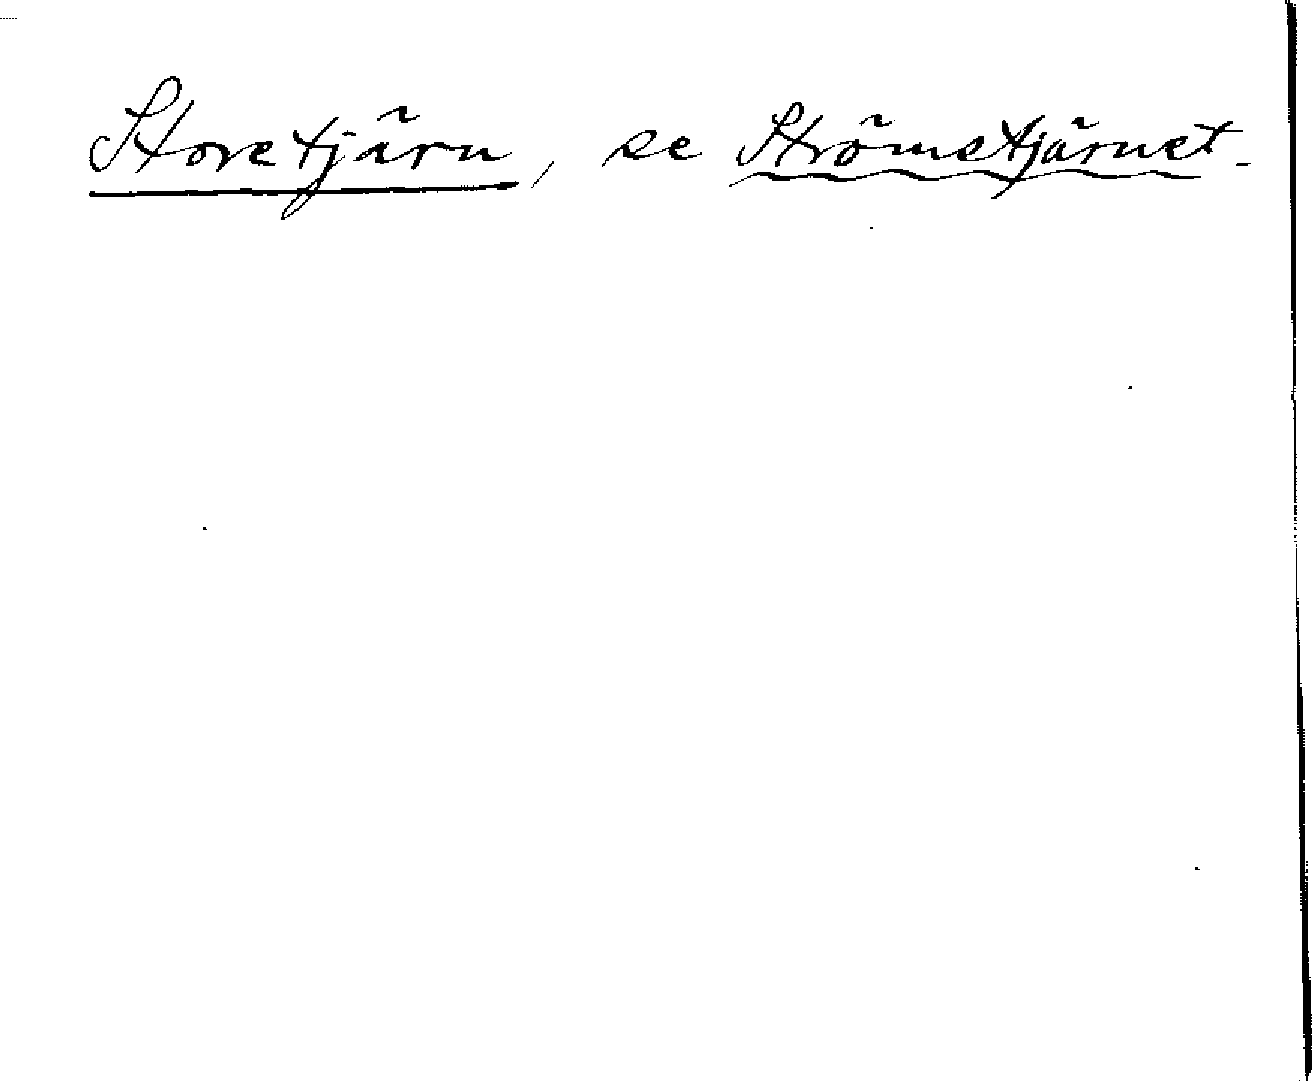 Storetjärn, se Strömstjärnet.